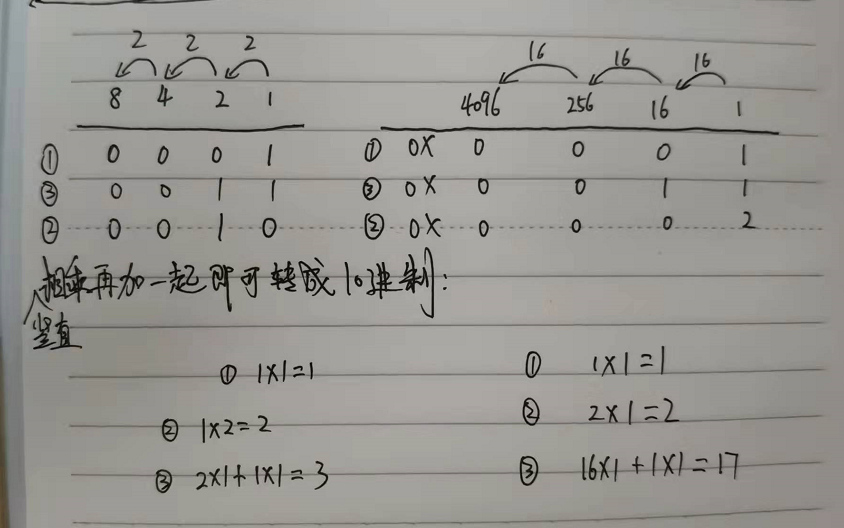 2 2 2 16 16 16
8 4 2 1 4096 256 16 1
① 0 0 0 1 ① 0X 0 0 0 1
③ 0 0 1 1 ③ 0X 0 0 1 1
② 0 0 1 0 ② 0X 0 0 0 2
相乘再加一起即可转成10进制:
竖直
① 1X1=1 ① 1X1=1
② 1X2=2 ② 2X1=2
③ 2X1+1X1=3 ③ 16X1+1X1=17